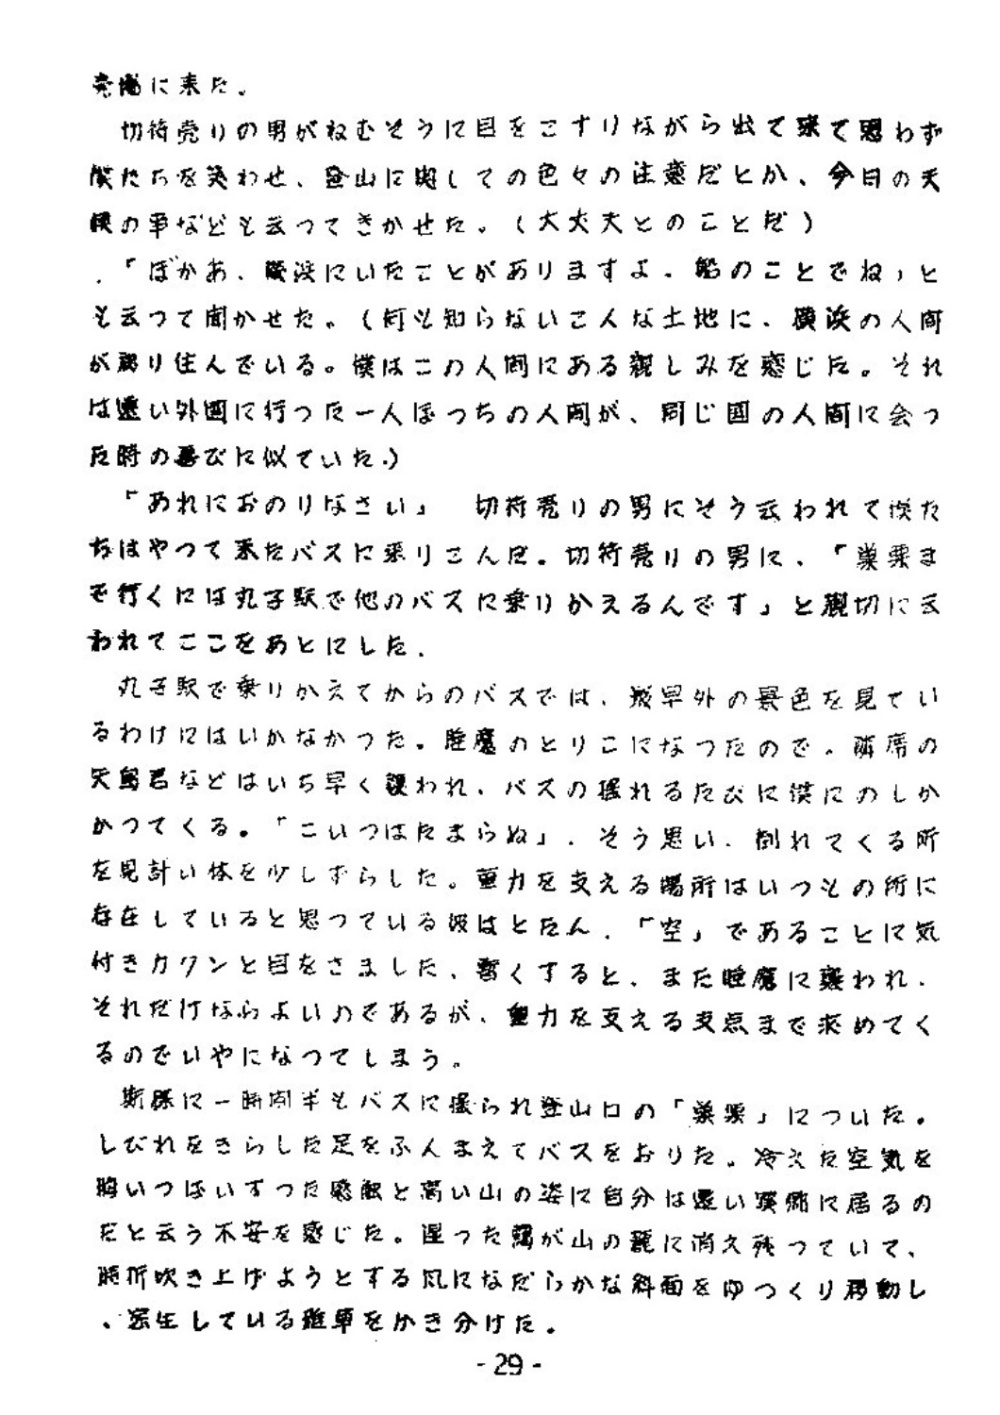 売場に来た。
切符売りの男がねむそうに目をこすりながら出て来て思わず
僕たちを笑わせ、登山に関しての色々の注意だとか、今日の天
候の事なども云つてきかせた。(大丈夫とのことだ)
「ぼかあ、横浜にいたことがありますよ。船のことでね」と
も云つて聞かせた。(何も知らないこんな土地に、横浜の人間
が移り住んでいる。僕はこの人間にある親しみを感じた。それ
は遠い外国に行つた一人ぼつちの人間が、同じ国の人間に会つ
た時の喜びに似ていた。)
「あれにおのりなさい」 切符売りの男にそう云われて僕た
ちはやつて来たバスに乗りこんだ。切符売りの男に、「巣栗ま
で行くには丸子駅で他のバスに乗りかえるんです」と親切に云
われてここをあとにした。
丸子駅で乗りかえてからのバスでは、最早外の景色を見てい
るわけにはいかなかつた。睡魔のとりこになつたので。隣席の
矢島君などはいち早く襲われ、バスの揺れるたびに僕にのしか
かつてくる。「こいつはたまらぬ」、そう思い、倒れてくる所
を見計い体を少しずらした。重力を支える場所はいつもの所に
存在していると思つている彼はとたん、「空」であることに気
付きガクンと目をさました、暫くすると、また睡魔に襲われ、
それだけならよいのであるが、重力を支える支点まで求めてく
るのでいやになつてしまう。
斯様に一時間半もバスに揺られ登山口の「巣栗」についた。
しびれをきらした足をふんまえてバスをおりた。冷えた空気を
胸いつぱいすつた感触と高い山の姿に自分は遠い異郷に居るの
だと云う不安を感じた。湿つた靄が山の麓に消え残つていて、
時折吹き上げようとする風になだらかな斜面をゆつくり移動し
、密生している雑草をかき分けた。
- 29 -